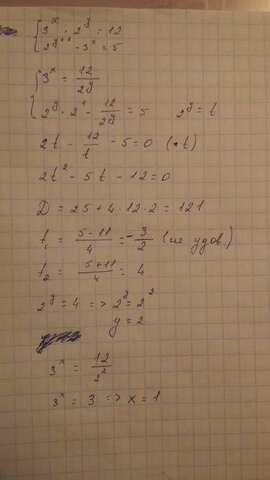 3^x · 2^y = 12
2^{y+1} - 3^x = 5
3^x = 12/2^y
2^y · 2^1 - 12/2^y = 5 2^y = t
2t - 12/t - 5 = 0 (·t)
2t^2 - 5t - 12 = 0
D = 25 + 4 · 12 · 2 = 121
t_1 = (5-11)/4 = -3/2 (не удов)
t_2 = (5+11)/4 = 4
2^y = 4 => 2^y = 2^2
y = 2
3^x = 12/2^2
3^x = 3 => x = 1